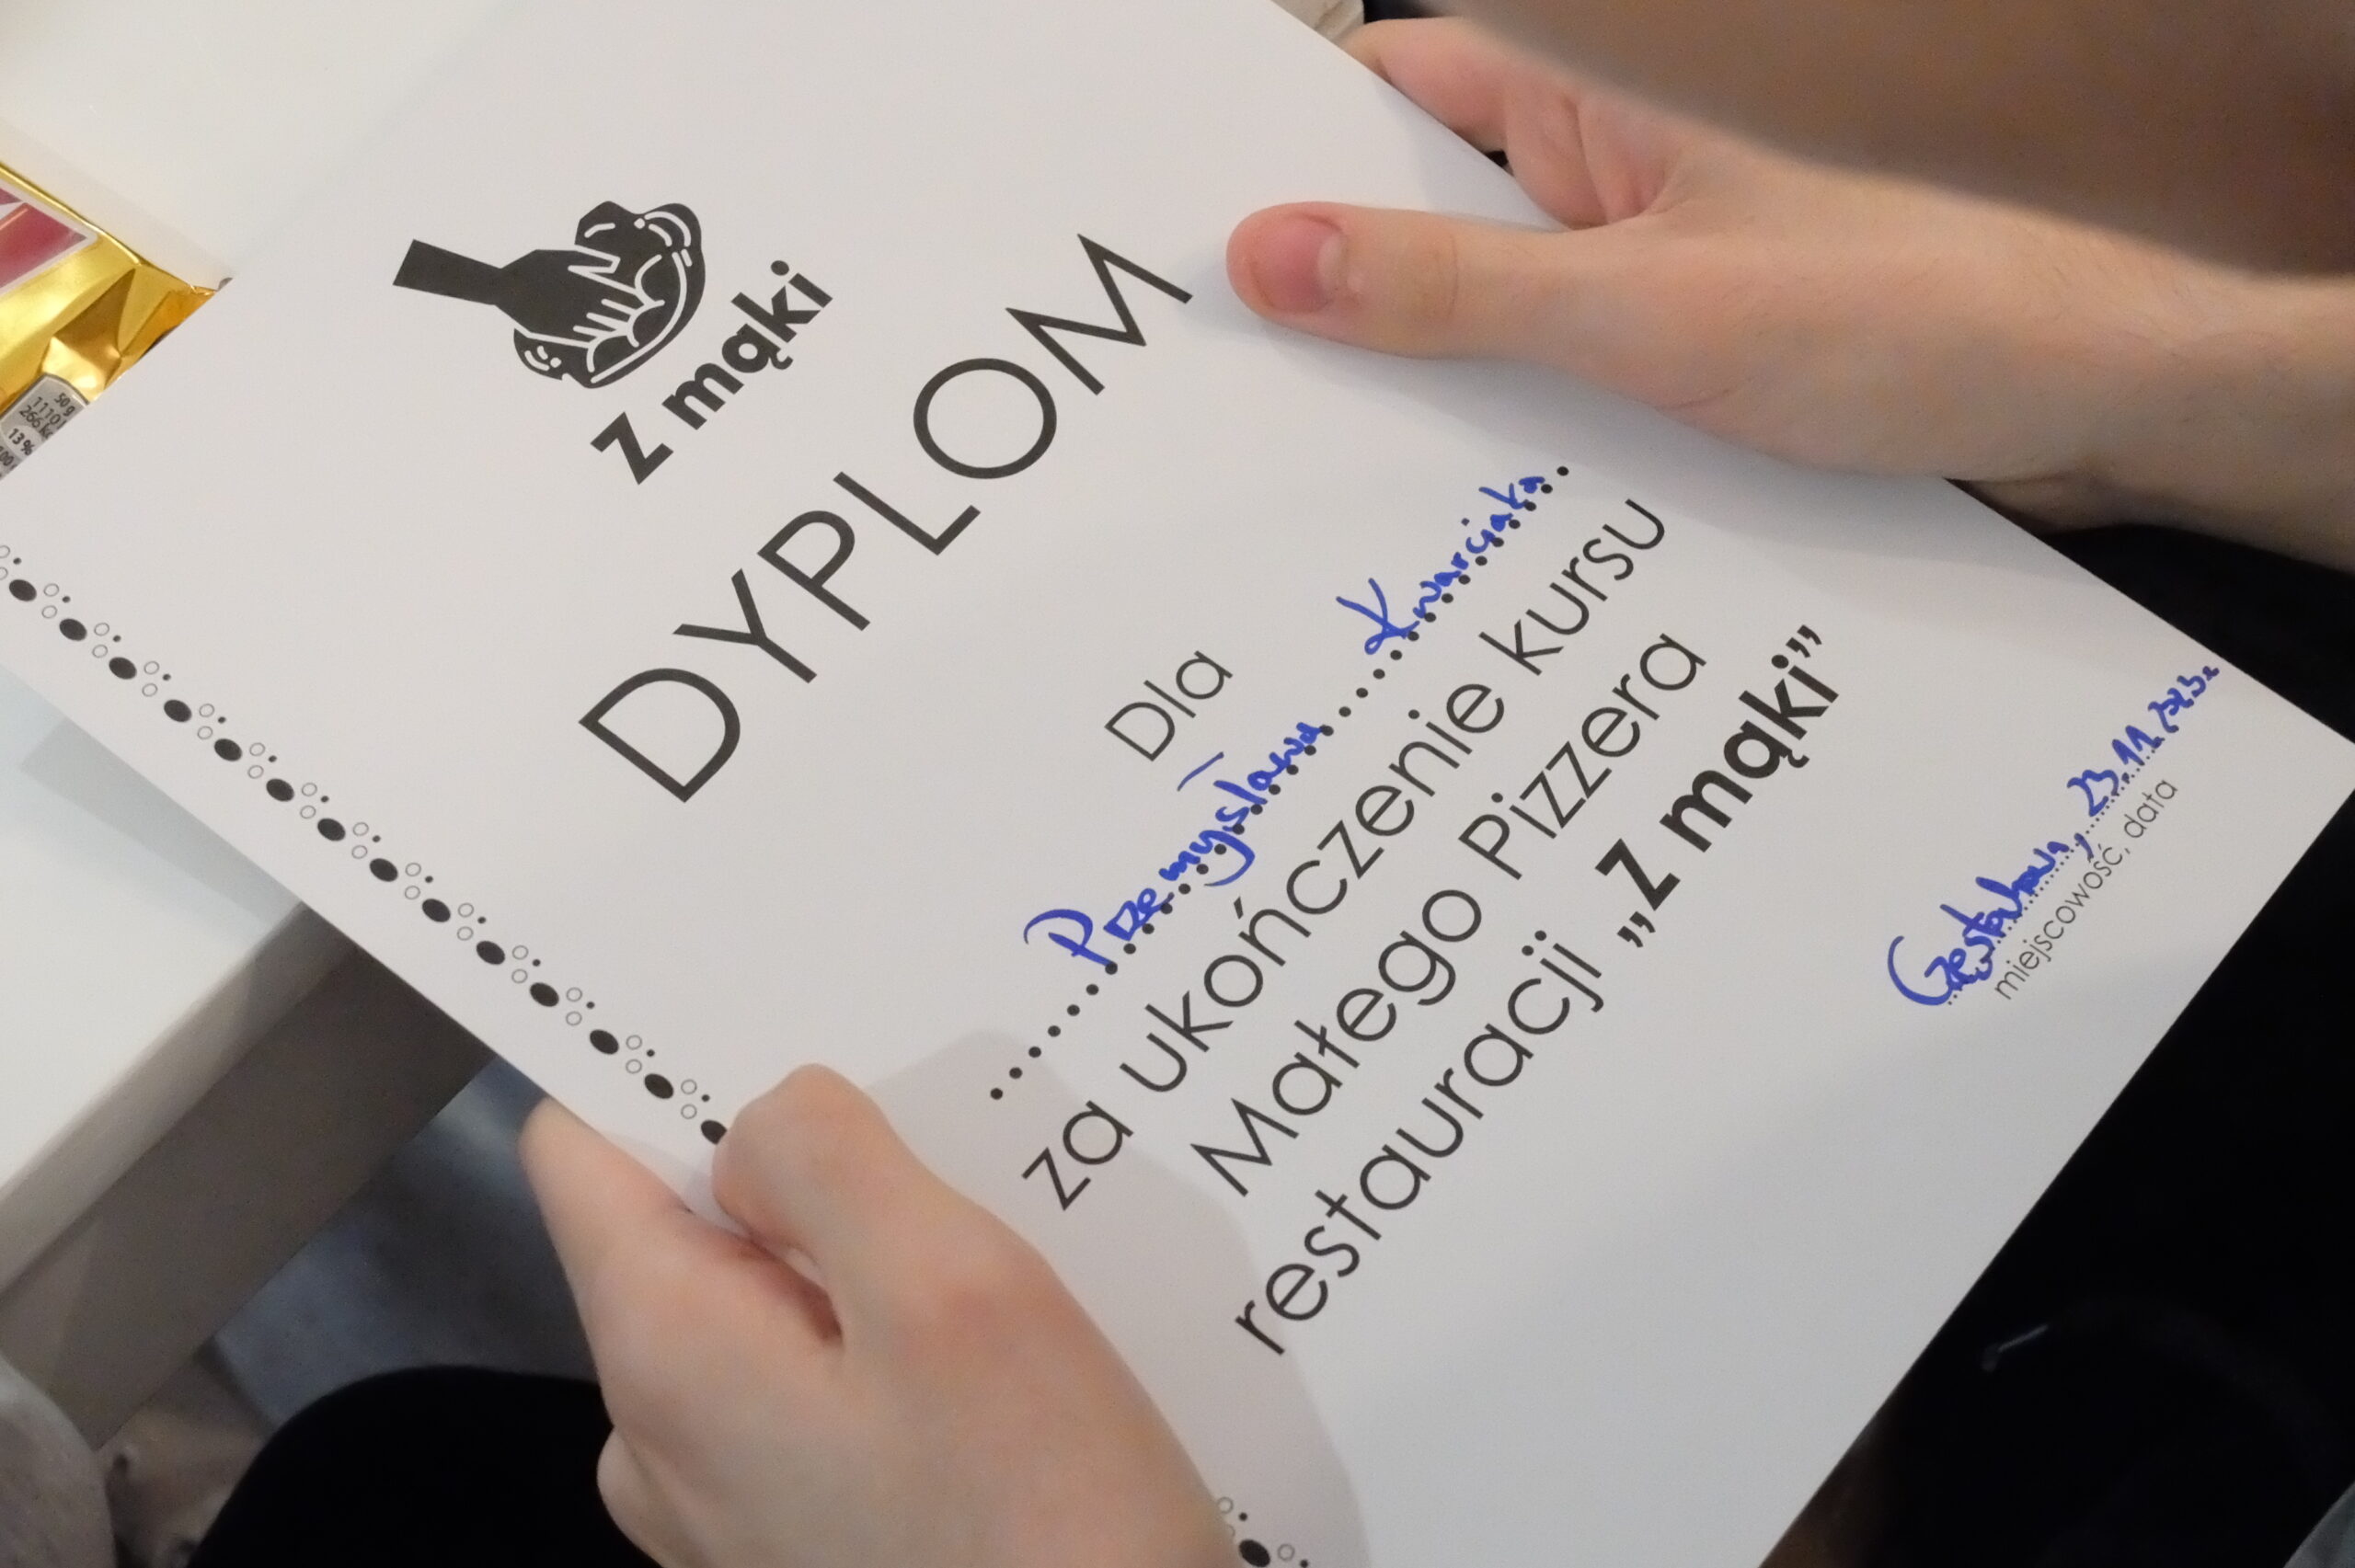 z mąki
DYPLOM
Dla
Przemysława Kwarciaka
za ukończenie kursu
Małego Pizzera
restauracji „z mąki”
Częstochowa, 23.11.2023r
miejscowość, data
50 g
13%